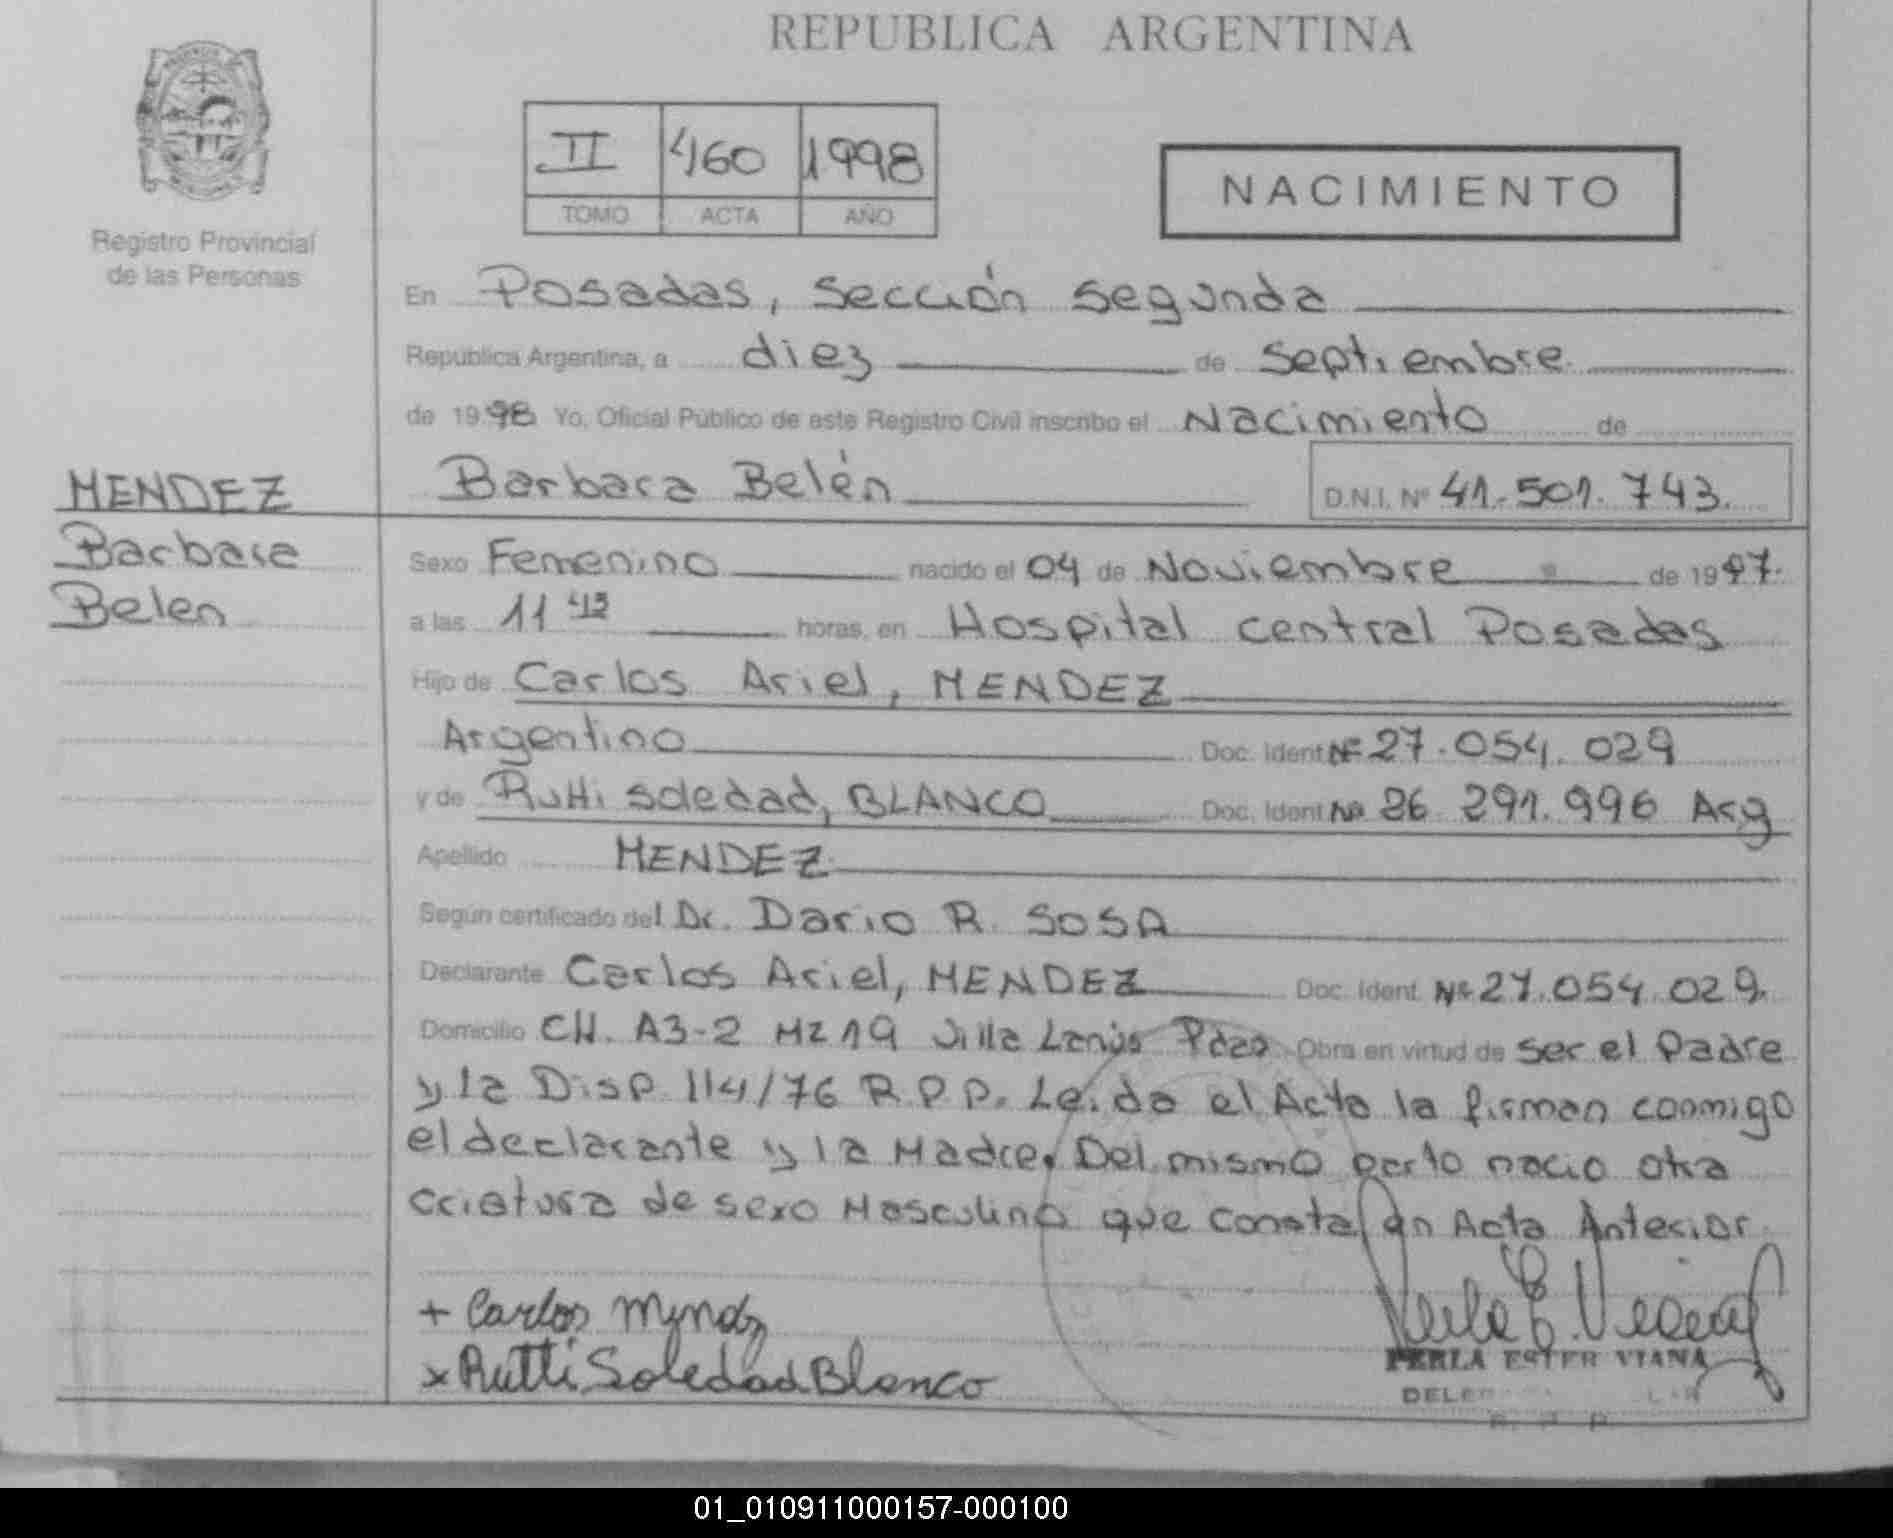 REPUBLICA ARGENTINA
II 460 1998
TOMO ACTA AÑO
NACIMIENTO
Registro Provincial
de las Personas
En Posadas, sección segunda
República Argentina, a diez de Septiembre
de 1998 Yo, Oficial Público de este Registro Civil inscribo el Nacimiento de
Barbara Belén D.N.I. Nº 41.501.743.
MENDEZ
Barbara
Belen
Sexo Femenino nacido el 04 de Noviembre de 1997.
a las 11 horas, en Hospital central Posadas
Hijo de Carlos Ariel, MENDEZ
Argentino Doc. Ident Nº 27.054.029
y de Rutti soledad, BLANCO Doc. Ident Nº 26.291.996 Arg
Apellido MENDEZ
Según certificado del Dr. Dario R. SOSA
Declarante Carlos Ariel, MENDEZ Doc. Ident. Nº 27.054.029.
Domicilio CH. A3-2 Mz 19 Villa Lanús Pdas Obra en virtud de ser el Padre
y la Disp. 114/76 R.P.P. Leida el Acta la firman conmigo
el declarante y la Madre. Del mismo parto nacio otra
criatura de sexo Masculino que consta en Acta Anterior.
+ Carlos Mendez
x Rutti Soledad Blanco
PERLA ESTER VIANA
R. P. P.
01_010911000157-000100